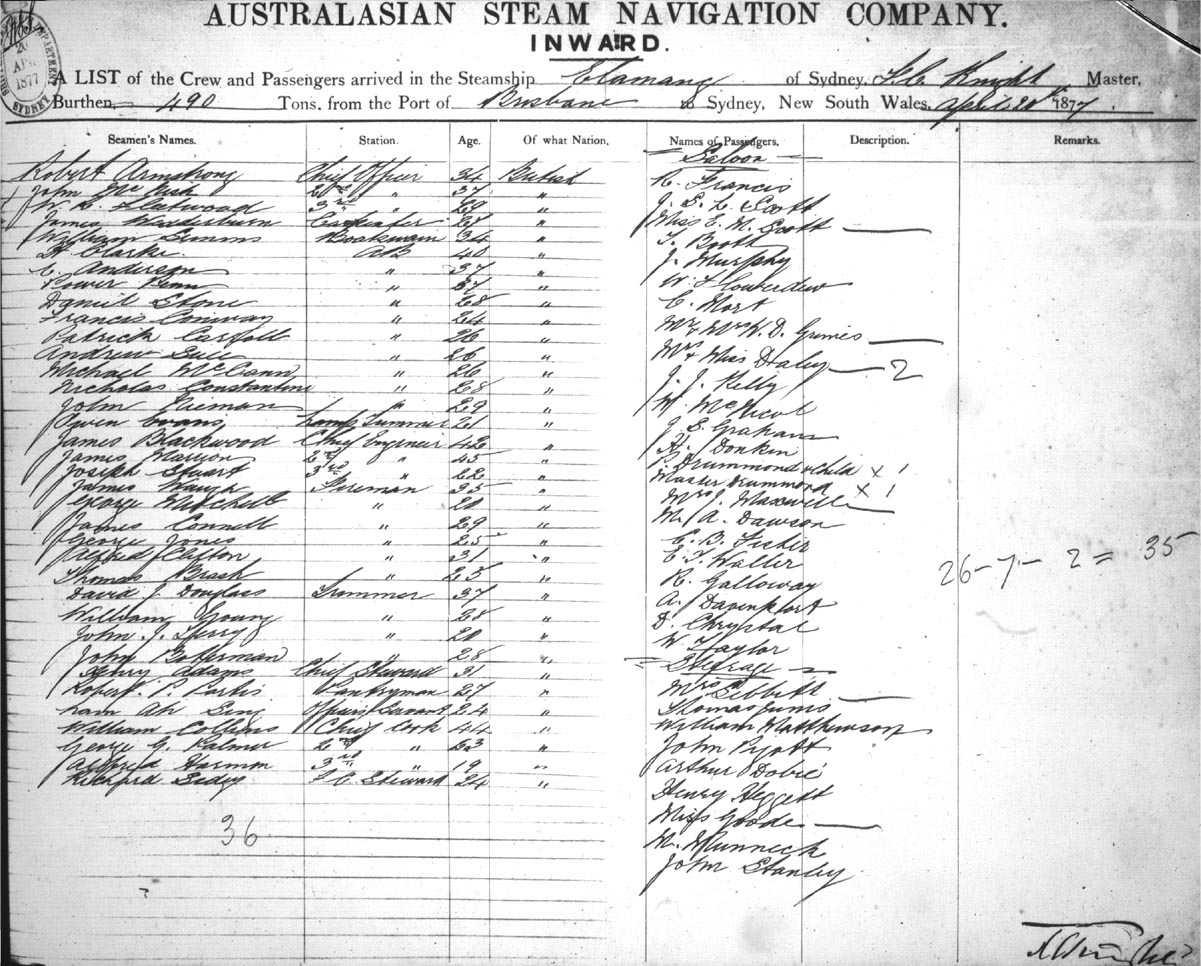 AUSTRALASIAN STEAM NAVIGATION COMPANY.
INWARD.
A LIST of the Crew and Passengers arrived in the Steamship Elamang of Sydney, Knight Master,
Burthen, 490 Tons, from the Port of Brisbane to Sydney, New South Wales, April 20th 1877
20 APR 1877 SYDNEY
Seamen's Names. Station. Age. Of what Nation, Names of Passengers, Description. Remarks.
Saloon
Robert Armstrong Chief Officer 34 British
John 2nd " 37 "
W. 3rd " 29 "
James Carpenter "
William Simms Boatswain 34 "
Clarke AB 40 "
C. Anderson " 37 "
Power " 27 "
Daniel Stone " 28 "
Francis Conway " 24 "
Patrick Carroll " 26 "
Andrew " 26 "
Michael McCann " 26 "
Nicholas Constantine " 28 "
John " 29 "
Owen Evans Lamp Trimmer 21 "
James Blackwood Chief Engineer 42 "
James 2nd " 45 "
Joseph Stuart 3rd " 22 "
James Waugh Fireman 35 "
George Mitchell " 20 "
James Connell " 29 "
George Jones " 25 "
Alfred Clifton " 31 "
Thomas Brash " 25 "
David J. Douglass Trimmer 37 "
William Young " 28 "
John J. Terry " 20 "
John " 28 "
Henry Adams Chief Steward 31 "
Robert P. Pantryman 27 "
Officers Servant 24 "
William Collins Chief Cook 44 "
George G. Palmer 2nd " 23 "
Alfred Harmon 3rd " 19 "
Richard Steward 24 "
36
R. Francis
J. S. L. Scott
Miss E. M. Scott
T. Booth
J. Murphy
W.
C. Mort
Mr & Mrs W. D. Grimes
Mrs & Miss 2
J. J. Kelly
W. McNicol
J. E. Graham
H. Donkin
P. Drummond & Child x 1
Master Drummond x 1
Mrs J. Maxwell
M. A. Dawson
C. B. Fisher
E. T. Waller
R. Galloway
A. Davenport
D. Chrystal
W Taylor
Steerage
Mrs
Thomas
William Matthewson
John Pyott
Arthur Dobie
Henry Heggett
Miss Goode
M.
John Stanley
26 - 7 - 2 = 35